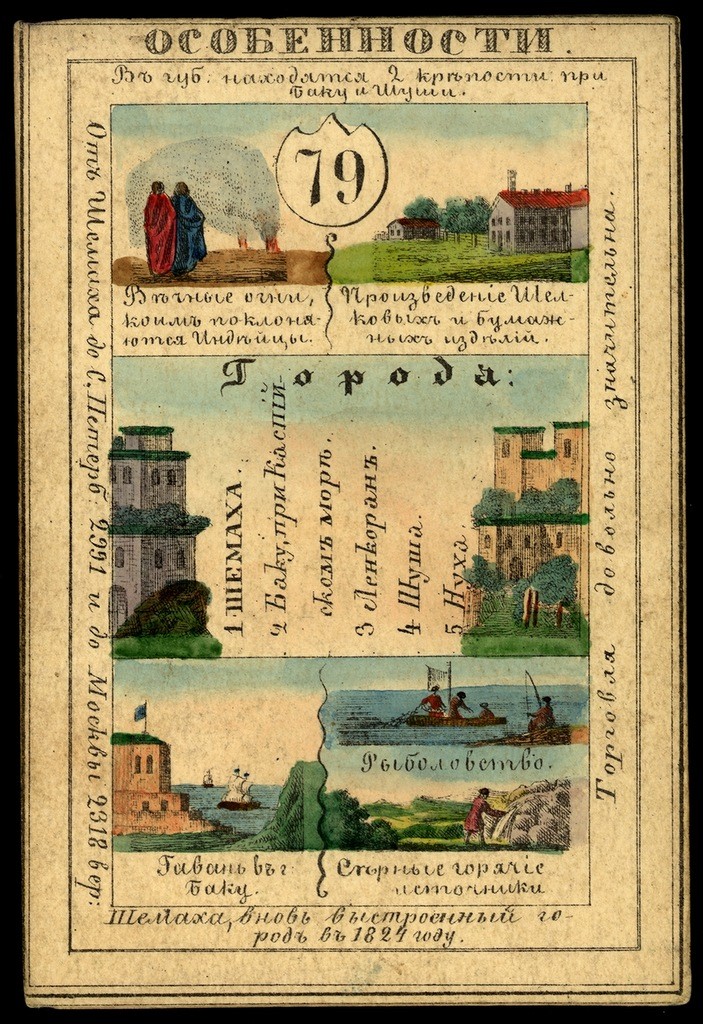 ОСОБЕННОСТИ.
Въ губ: находятся 2 крѣпости: при
Баку и Шуши.
79
Вѣчные огни,
коимъ поклоня-
ются Индѣйцы.
Произведеніе Шел-
ковыхъ и бумаж-
ныхъ издѣлій.
Города:
1 ШЕМАХА.
2 Баку, при Каспій-
скомъ морѣ.
3 Ленкоранъ.
4 Шуша.
5 Нуха.
Рыболовство.
Гавань въ г:
Баку.
Сѣрные горячіе
источники
Шемаха, вновь выстроенный го-
родъ въ 1824 году.
Отъ Шемаха до С, Петерб: 2991 и до Москвы 2318 вер:
Торговля довольно значительна.